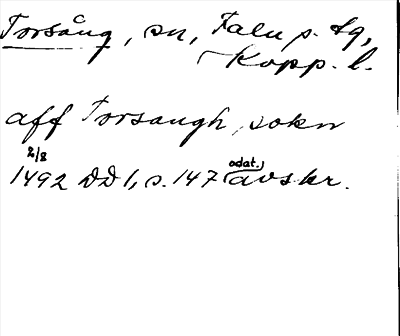 Torsång, sn, Falu p. tg,
Kopp. l.
aff Torsaugh, sokn
2/8
1492 DD 1, s. 147 (odat.) avskr.